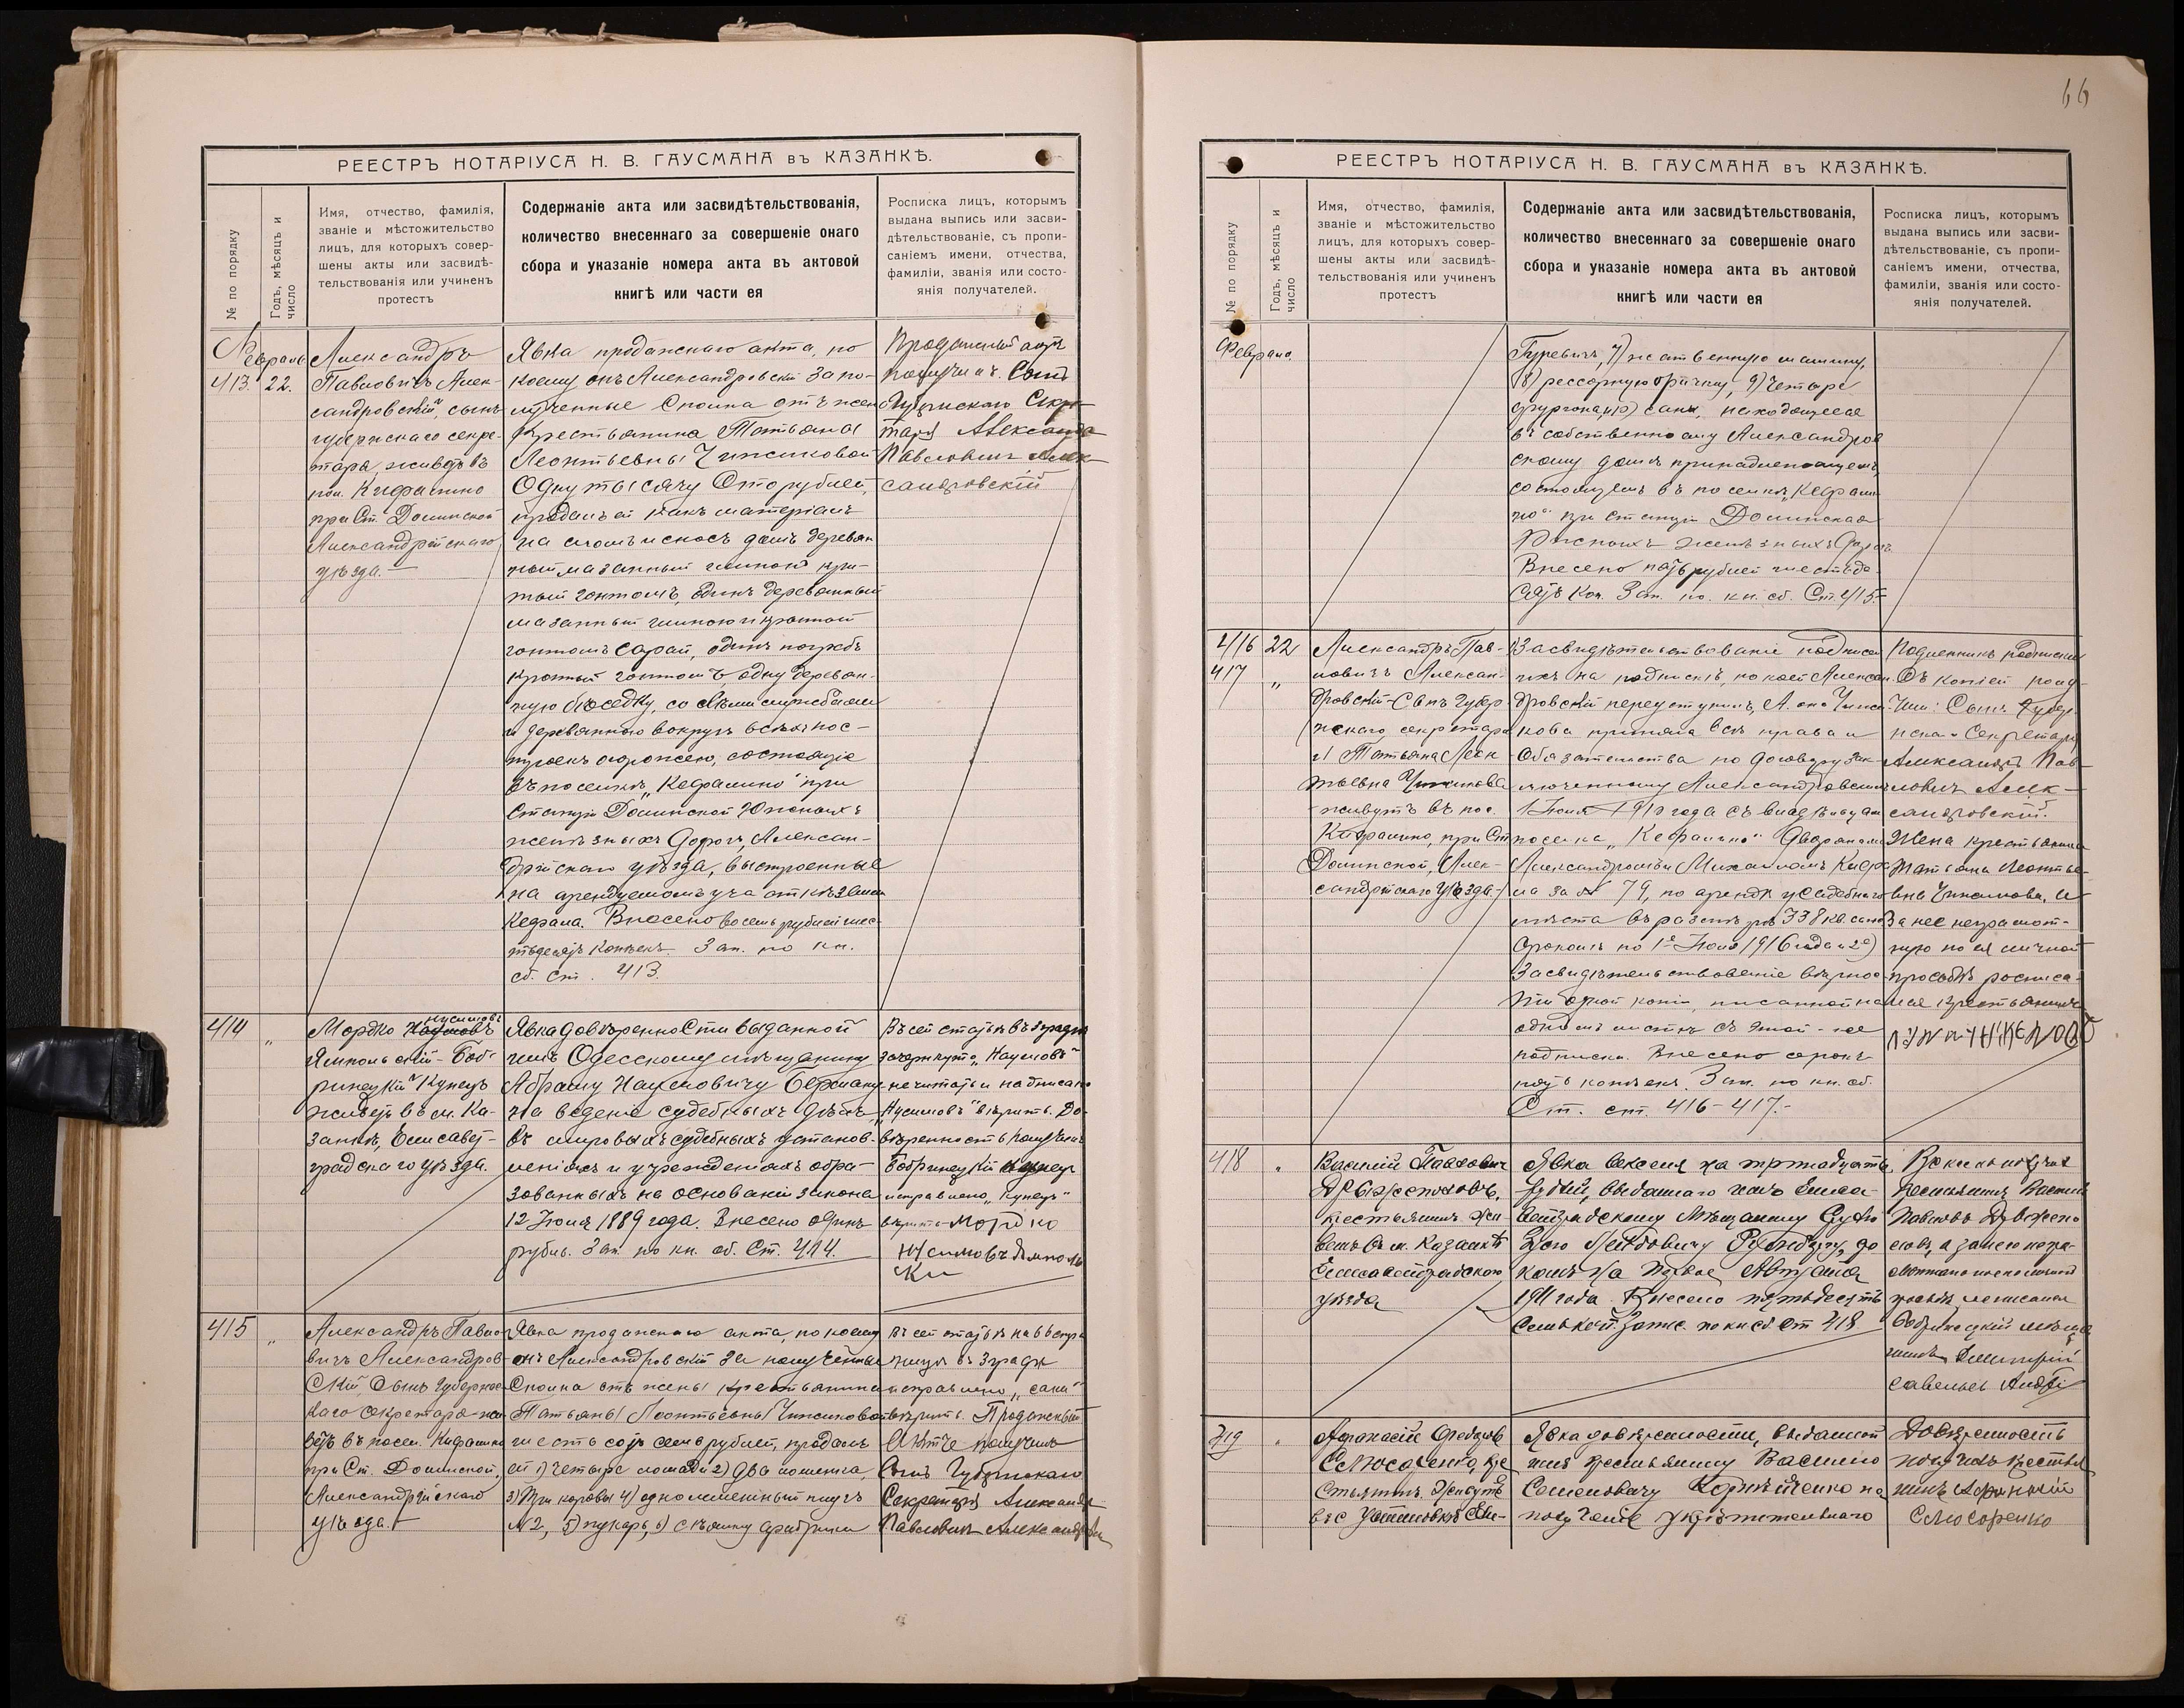 РЕЕСТРЪ НОТАРІУСА Н. В. ГАУСМАНА въ КАЗАНКѢ.
№ по порядку
Годъ, мѣсяцъ и
число
Имя, отчество, фамилія,
званіе и мѣстожительство
лицъ, для которыхъ совер-
шены акты или засвидѣ-
тельствованія или учиненъ
протестъ
Содержаніе акта или засвидѣтельствованія,
количество внесеннаго за совершеніе онаго
сбора и указаніе номера акта въ актовой
книгѣ или части ея
Росписка лицъ, которымъ
выдана выпись или засви-
дѣтельствованіе, съ пропи-
саніемъ имени, отчества,
фамиліи, званія или состо-
янія получателей.
Февраль
413. 22.
Александръ
Павловичъ Алек-
сандровскій, сынъ
губернскаго секре-
таря, живетъ въ
пос. Кефалино
при Ст. Долинской
Александрійскаго
уѣзда.—
Явка продажнаго акта, по
коему онъ Александровскій за по-
лученные сполна отъ жены
крестьянина Татьяны
Леонтьевны Чижиковой
Одну тысячу сто рублей,
продалъ ей какъ матеріалъ
на сломъ и сносъ домъ деревян-
ный мазанный глиною кры-
тый гонтомъ, одинъ деревянный
мазанный глиною и крытый
гонтомъ сарай, одинъ погребъ
крытый гонтомъ, одну деревян-
ную бесѣдку, со всѣми службами
и деревянною вокругъ всѣхъ пос-
троекъ огорожею, состоящіе
въ поселкѣ „Кефалино" при
Станціи Долинской Южныхъ
желѣзныхъ дорогъ, Алексан-
дрійскаго уѣзда, выстроенные
на арендуемомъ участкѣ земли
Кефала. Внесено восемь рублей шес-
тьдесятъ копѣекъ Зап. по кн.
сб. ст. 413.
Продажный актъ
получилъ. Сынъ
Губернскаго Секре-
таря Александръ
Павловичъ Алек-
сандровскій
414 „
Мордко Наумовъ Нусимовъ
Ямпольскій - Боб-
ринецкій Купецъ
живетъ въ м. Ка-
занкѣ, Елисавет-
градскаго уѣзда.
Явка довѣренности выданной
имъ Одесскому мѣщанину
Абраму Наумовичу Берману
на веденіе судебныхъ дѣлъ
въ мировыхъ судебныхъ установ-
леніяхъ и учрежденіяхъ обра-
зованныхъ на основаніи закона
12 Іюля 1889 года. Внесено одинъ
рубль. Зап. по кн. сб. Ст. 414.
Въ сей статьѣ въ 3 графѣ
зачеркнуто „Наумовъ"
не читать и надписано
„Нусимовъ" вѣрить. До-
вѣренность получилъ
Бобринецкій купецъ
исправлено „Купецъ"
вѣрить Мордко
Нусимовъ Ямполь
ски
415 „
Александръ Павло-
вичъ Александров-
скій, Сынъ Губернс-
каго секретаря жи-
ветъ въ посел. Кефалино
при Ст. Долинской,
Александрійскаго
уѣзда.
Явка продажнаго акта, по коему
онъ Александровскій за полученные
сполна отъ жены крестьянина
Татьяны Леонтьевны Чижиковой
шестьсотъ семь рублей, продалъ
ей 1) четыре лошади 2) два лошенка,
3) три коровы 4) одно лемешный плугъ
№2, 5) пукарь, 6) сѣялку фабрики
Въ сей статьѣ на 66 стра-
ницѣ въ 3 графѣ
исправлено „сани"
вѣрить. Продажный
Актъ получилъ
Сынъ Губернскаго
Секретаря Александръ
Павловичъ Александровскій
66
РЕЕСТРЪ НОТАРІУСА Н. В. ГАУСМАНА въ КАЗАНКѢ.
№ по порядку
Годъ, мѣсяцъ и
число
Имя, отчество, фамилія,
званіе и мѣстожительство
лицъ, для которыхъ совер-
шены акты или засвидѣ-
тельствованія или учиненъ
протестъ
Содержаніе акта или засвидѣтельствованія,
количество внесеннаго за совершеніе онаго
сбора и указаніе номера акта въ актовой
книгѣ или части ея
Росписка лицъ, которымъ
выдана выпись или засви-
дѣтельствованіе, съ пропи-
саніемъ имени, отчества,
фамиліи, званія или состо-
янія получателей.
Февраль.
Гуревичъ, 7) жатвенную машину,
8) рессорную бричку, 9) четыре
фургона, и 10) сани, находящееся
въ собственно ему Александров
скому домѣ принадлежащемъ,
состоящемъ въ поселкѣ „Кефали-
но" при станціи Долинская
Южныхъ желѣзныхъ дорогъ
Внесено пять рублей шестьде-
сятъ коп. Зап. по кн. сб. Ст. 415.
416 22
417 „
Александръ Пав-
ловичъ Алексан-
дровскій-Сынъ Губер-
нскаго секретаря
и Татьяна Леон-
тьевна Чижикова
живутъ въ пос.
Кефалино, при Ст.
Долинской, Алек-
сандрійскаго уѣзда.
Засвидѣтельствованіе подписи
ихъ на подпискѣ, по коей Алексан-
дровскій переуступилъ, а она Чижи-
кова приняла всѣ права и
Обязательства по договору зак-
люченному Александровскимъ
1 Іюля 1910 года съ владѣльцами
поселка „Кефалино" дворянами
Александромъ и Михаиломъ Кефа-
ла за № 79, по арендѣ усадебнаго
мѣста въ размѣрѣ 338 кв. саж.
срокомъ по 1е Іюля 1916 года и 2е)
Засвидѣтельствованіе вѣрнос-
ти одной копіи, писанной на
одномъ листѣ съ этой-же
подписки. Внесено сорокъ
пять копѣекъ. Зап. по кн. сб.
Ст. ст. 416-417.-
Подлинникъ подписки
Съ копіей полу-
чили: Сынъ Губер-
нскаго Секретаря
Александръ Пав-
ловичъ Алек-
сандровскій.
Жена крестьянина
Татьяна Леонтье-
вна Чижикова, а
за нее неграмот-
ную по ея личной
просьбѣ росписа-
лся крестьянинъ
418 „
Василій Павловичъ
крестьянинъ жи-
ветъ въ м. Казанкѣ
Елисаветградскаго
уѣзда
Явка векселя на тринадцать
рублей, выданнаго имъ Елиса-
ветградскому Мѣщанину
до
комъ на первое Августа
1911 года. Внесено пятьдесятъ
семь коп. Запис. по кн сб ст 418
Вексель получилъ
крестьянинъ Василій
Павловъ
а за него негра-
мотнаго по его личной
просьбѣ росписался
Бобринецкій мѣща
нинъ Дмитрій
Савельев
419 „
Афанасій Федоровъ
Слюсаренко, кре
стьянинъ. Живутъ
въ с
Явка довѣренности, выданной
имъ крестьянину Василію
Семеновичу Корнѣйченко на
полученіе
Довѣренность
получилъ крестья
нинъ Афанасій
Слюсаренко